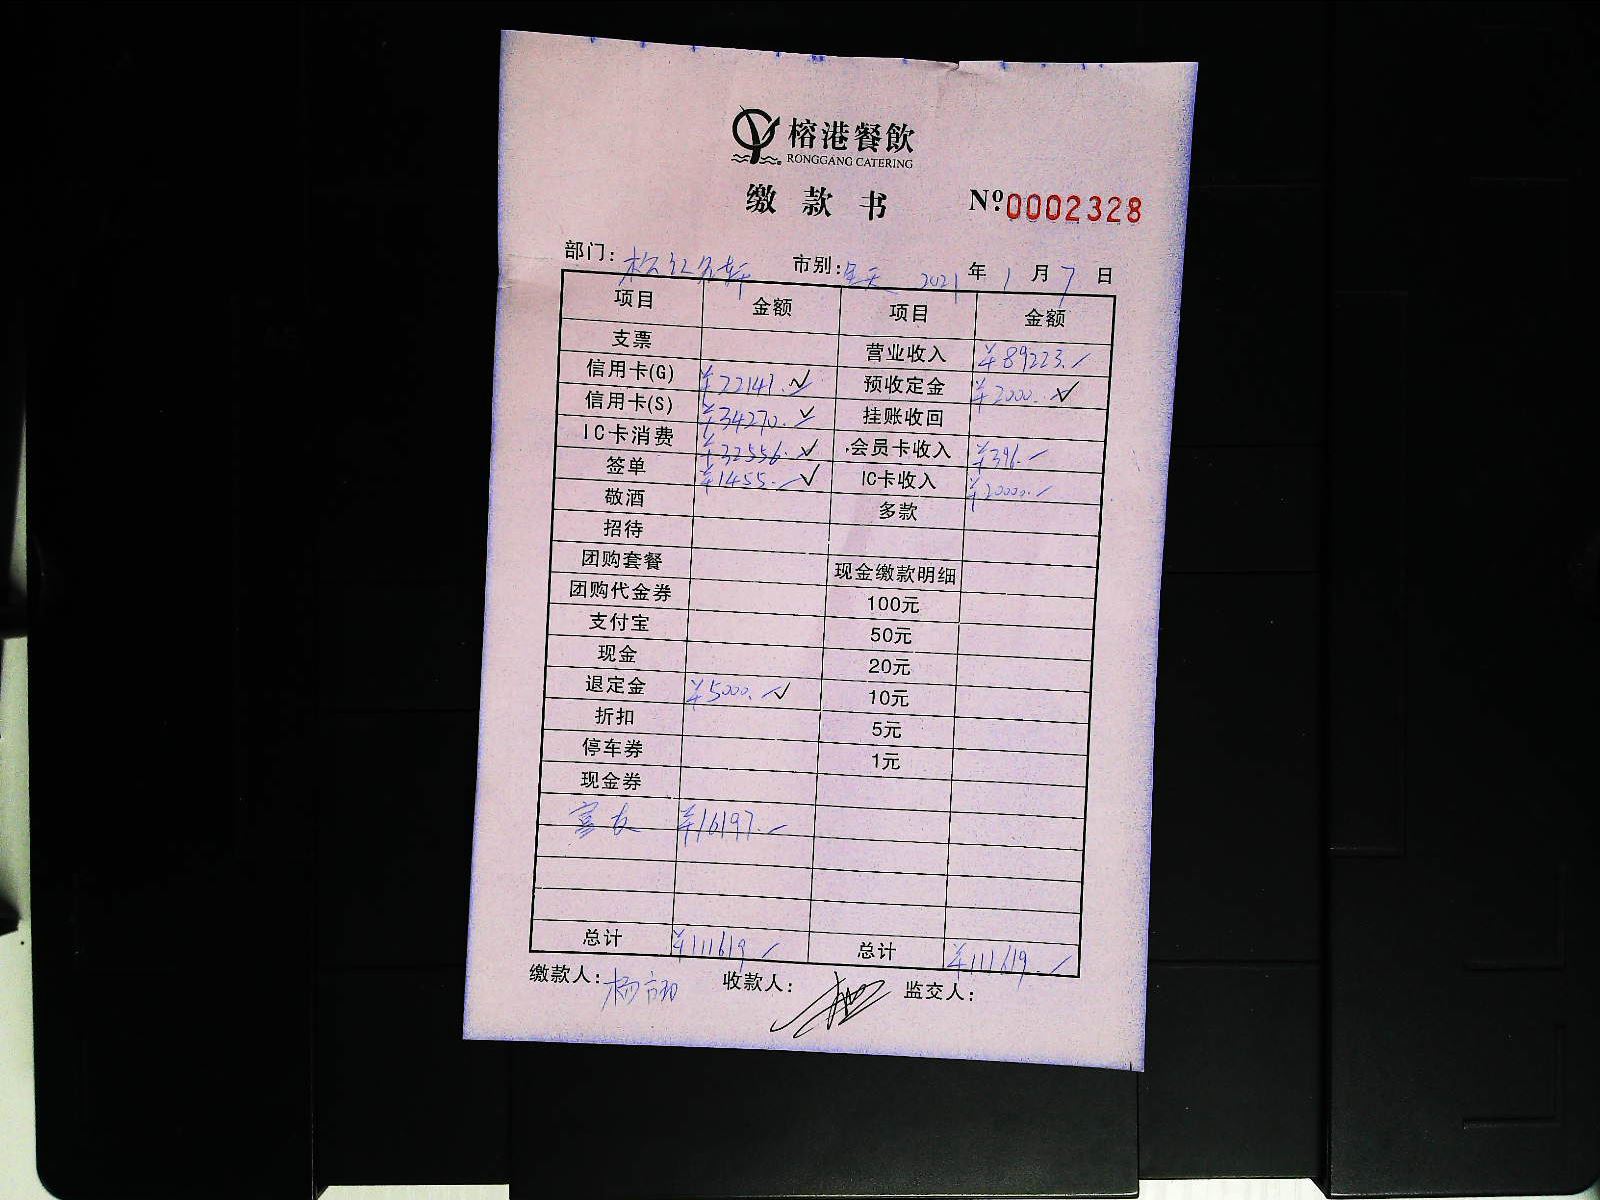 榕港餐飲
RONGGANG CATERING
缴款书 Nº:0002328
部门: 市别:全天 2021年1月7日
项目 金额 项目 金额
支票 营业收入 ¥89223.
信用卡(G) ¥22141. 预收定金 ¥2000.
信用卡(S) ¥34270. 挂账收回
IC卡消费 ¥32556. 会员卡收入 ¥396.
签单 ¥1455. IC卡收入 ¥20000.
敬酒 多款
招待
团购套餐 现金缴款明细
团购代金券 100元
支付宝 50元
现金 20元
退定金 ¥5000. 10元
折扣 5元
停车券 1元
现金券
富友 ¥16197.
总计 ¥111619 总计 ¥111619.
缴款人: 收款人: 监交人: